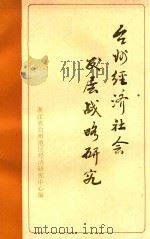 台州经济社会
发展战略研究
浙江省台州地区经济研究中心编